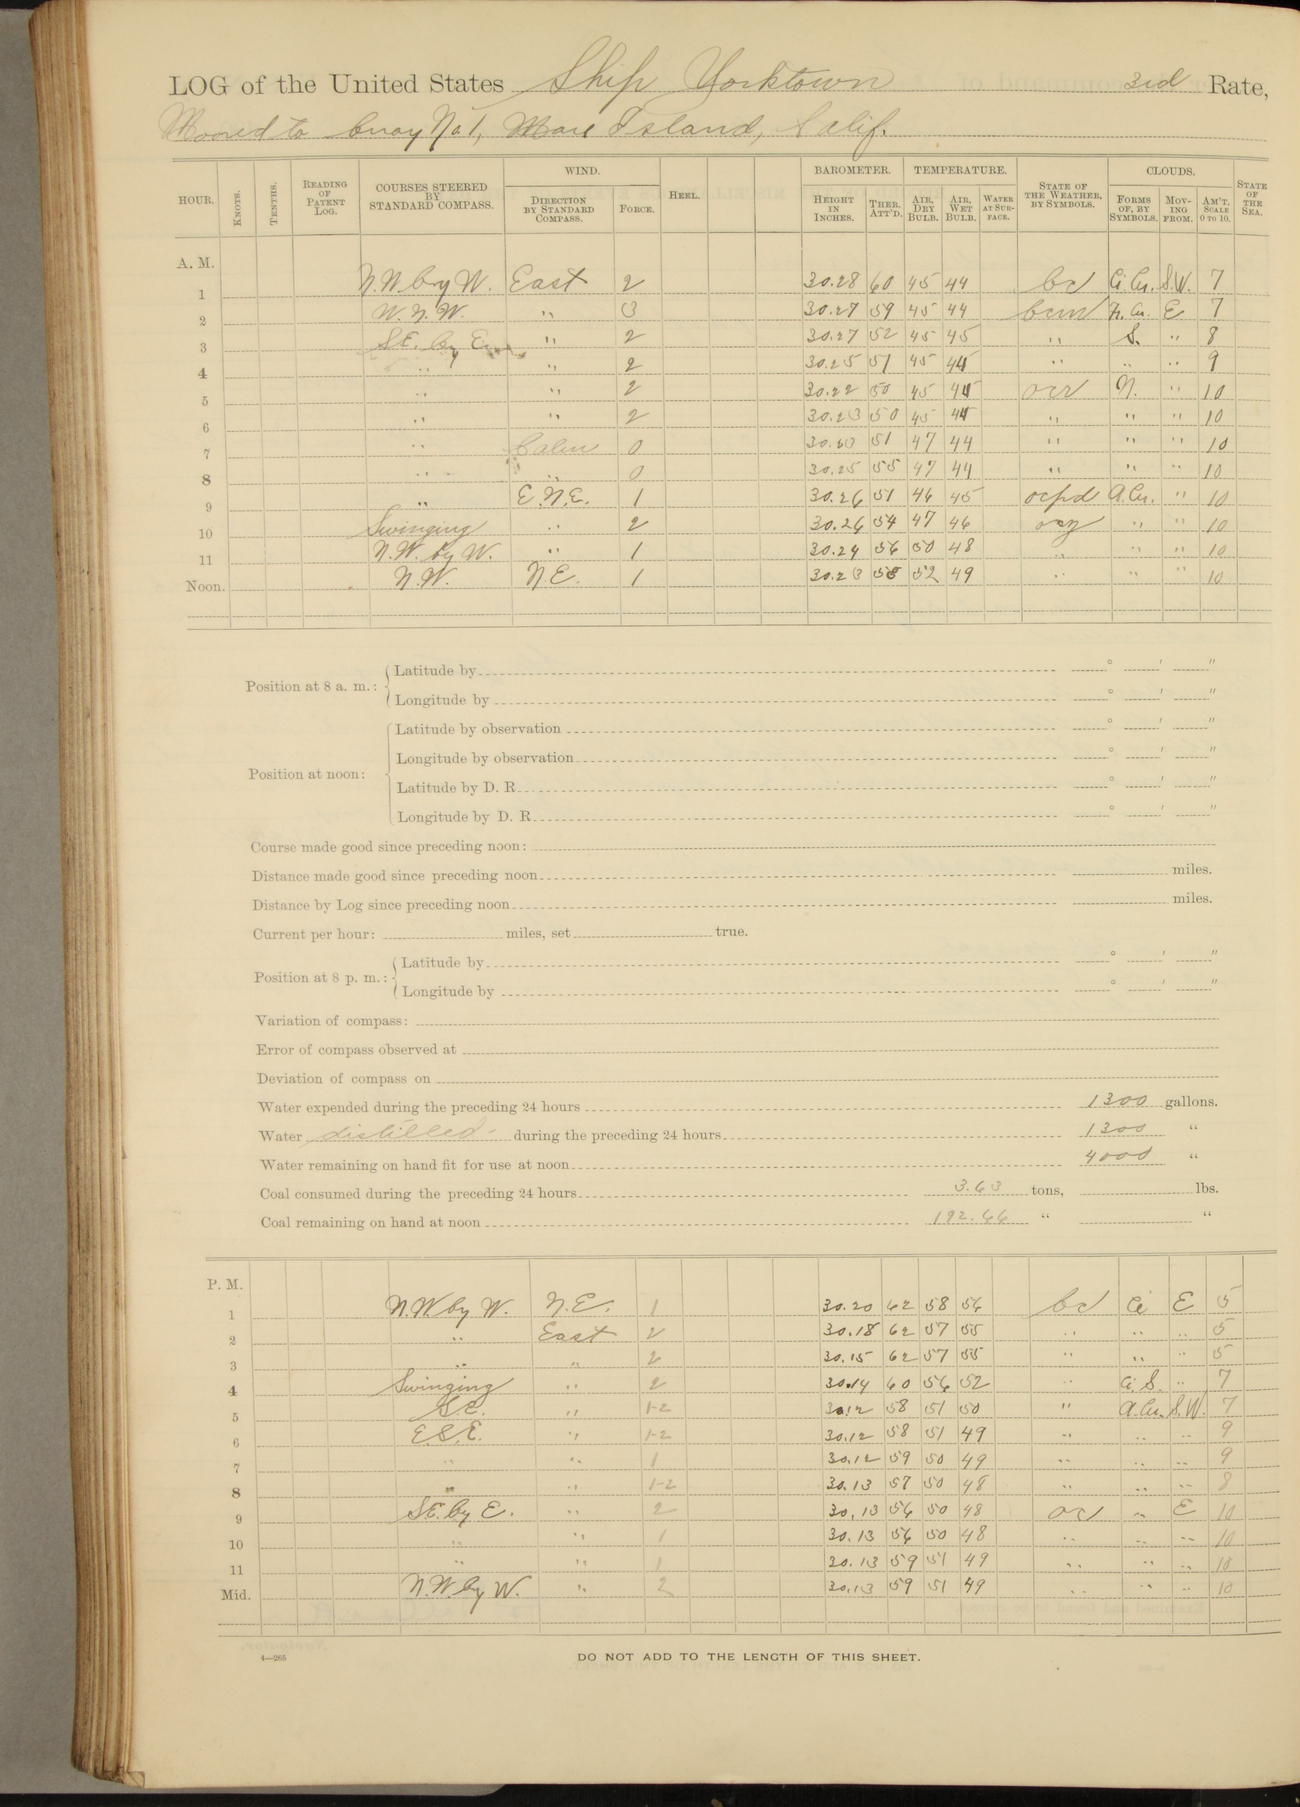 LOG of the United States Ship Yorktown 3rd Rate,
Moored to buoy No 1, Mare Island, Calif.
HOUR. KNOTS. TENTHS. READING OF PATENT LOG. COURSES STEERED BY STANDARD COMPASS. WIND. DIRECTION BY STANDARD COMPASS. FORCE. HEEL. BAROMETER. HEIGHT IN INCHES. THER. ATT'D. TEMPERATURE. AIR, DRY BULB. AIR, WET BULB. WATER AT SURFACE. STATE OF THE WEATHER, BY SYMBOLS. CLOUDS. FORMS OF, BY SYMBOLS. MOVING FROM. AM'T. SCALE 0 TO 10. STATE OF THE SEA.
A. M.
1 N.W. by W. East 2 30.28 60 45 44 bc Ci.Cu. S.W. 7
2 W.N.W. " 3 30.27 59 45 44 bcm E 7
3 SE. by E. " 2 30.27 52 45 45 " S. " 8
4 " " 2 30.25 51 45 44 " " " 9
5 " " 2 30.22 50 45 44 ocr N. " 10
6 " " 2 30.23 50 45 44 " " " 10
7 " Calm 0 51 47 44 " " " 10
8 " " 0 30.25 55 47 44 " " " 10
9 " E.N.E. 1 30.26 51 46 45 ocpd A.Cu. " 10
10 Swinging " 2 30.26 54 47 46 " " 10
11 N.W. by W. " 1 30.24 56 50 48 " " " 10
Noon. N.W. N.E. 1 30.23 58 52 49 " " " 10
Position at 8 a. m.: Latitude by ° ' "
Longitude by ° ' "
Position at noon: Latitude by observation ° ' "
Longitude by observation ° ' "
Latitude by D. R. ° ' "
Longitude by D. R. ° ' "
Course made good since preceding noon:
Distance made good since preceding noon miles.
Distance by Log since preceding noon miles.
Current per hour: miles, set true.
Position at 8 p. m.: Latitude by ° ' "
Longitude by ° ' "
Variation of compass:
Error of compass observed at
Deviation of compass on
Water expended during the preceding 24 hours 1300 gallons.
Water distilled during the preceding 24 hours 1300 "
Water remaining on hand fit for use at noon 4000 "
Coal consumed during the preceding 24 hours 3.63 tons, lbs.
Coal remaining on hand at noon 192.66 " "
P. M.
1 N.W by W. N.E. 1 30.20 62 58 56 bc Ci E 5
2 " East 2 30.18 62 57 55 " " " 5
3 " " 2 30.15 62 57 55 " " " 5
4 Swinging " 2 30.14 60 56 52 " Ci.S. " 7
5 S.E. " 1-2 30.12 58 51 50 " A.Cu. S.W. 7
6 E.S.E. " 1-2 30.12 58 51 49 " " " 9
7 " " 1 30.12 59 50 49 " " " 9
8 " " 1-2 30.13 57 50 48 " " " 8
9 SE. by E. " 2 30.13 56 50 48 oc " E 10
10 " " 1 30.13 56 50 48 " " " 10
11 " " 1 30.13 59 51 49 " " " 10
Mid. N.W. by W. " 2 30.13 59 51 49 " " " 10
4—265 DO NOT ADD TO THE LENGTH OF THIS SHEET.